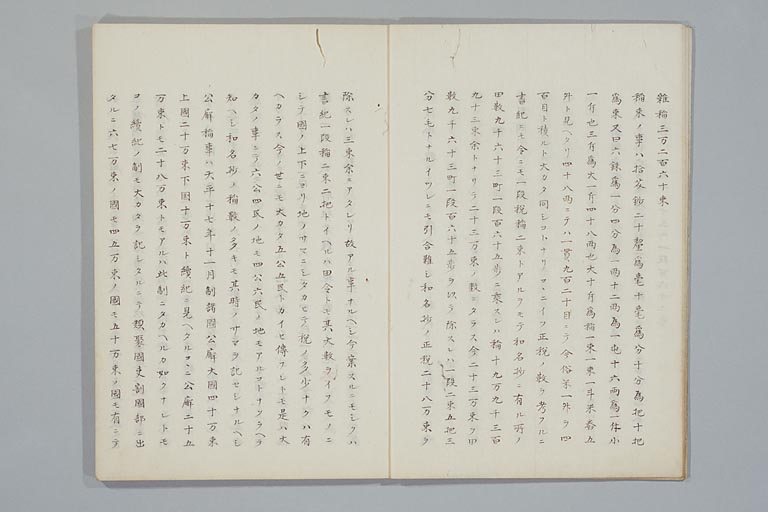 雜稲三万二百六十束
稲束ノ事ハ拾芥鈔ニ十釐為毫十毫為分十分為把十把
為束又曰六銖為一分四分為一両十二両為一屯十六両為一斤小
一斤也三斤為大一斤四十八両也大十斤為稲一束一束一斗米舂五
升ト見ヘタリ四十八両ニテハ一貫九百二十目ニテ今俗ノ一升ヲ四
百目ト積ルト大カタ同シコトナリコヽニイフ正税ノ数ヲ考フルニ
書紀ニモ令ニモ一段税稲二束トアルヲモテ和名抄ニ有ル所ノ
田数九千六十三町一段百六十五歩ニ乗スレハ稲十九万九千三百
九十三束余トナリテ二十三万束ノ数ニタラス今二十三万束ヲ田
数九千六十三町一段百六十五歩ヲ以テ除スレハ一段二束五把三
分七毛トナルイツレニモ引合難シ和名抄ノ正税二十八万束ヲ
除スレハ三束余ニアタレリ故アル事ナルヘシ今案スルニモシクハ
書紀一段稲二束二把トイヘルハ田令トモ其大数ヲイフモノニ
シテ國ノ上下ニヨリ地ノサマニシタカヒテ税ノ多少ナクハ有
ヘカラス今ノ世ニモ大カタ五公五民トカイヒ傳フレトモ是ハ大
カタノ事ニテ六公四民ノ地モ四公六民ノ地モアルヲトナスラヘテ
知ヘシ和名抄ノ稲数ノ多キモ其時ノサマヲ記セシナルヘシ
公廨稲事ハ天平十七年十一月制諸國公廨大國四十万束
上國三十万束下國十万束ト續紀ニ見ヘタルヲコヽニ公廨二十五
万束トモ二十八万束トモアルハ此制ニタカヘルカ如クナレトモ
コノ續紀ノ制モ大カタヲ記シタルニテ類聚國史割國部ニ出
タルニ六七万束ノ國モ四五万束ノ國モ五十万束ノ國モ有ニテ